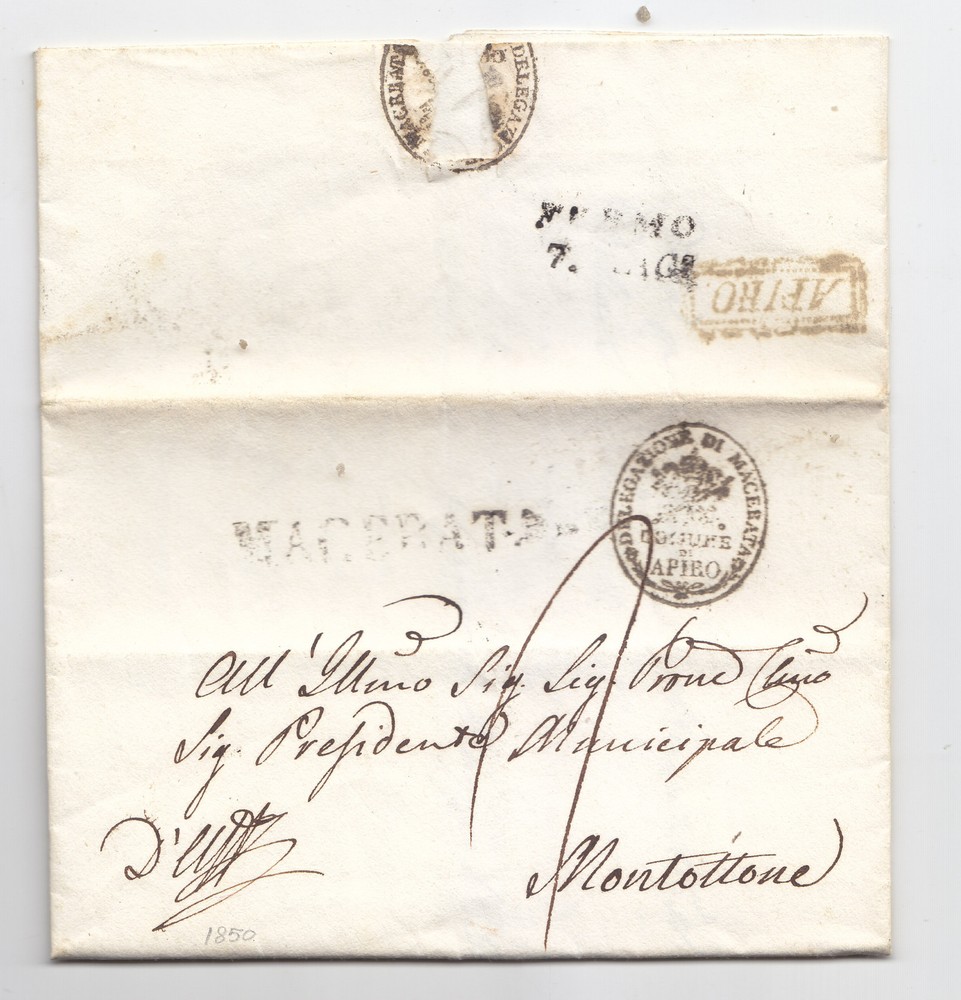 MACERATA
DELEGAZI
FERMO
7. MAG
APIRO
DELEGAZIONE DI MACERATA
COMUNE
DI
APIRO
MACERATA
All'Illmo Sig. Sig. Prone Clmo
Sig. Presidente Municipale
D'Uff
Montottone
1850